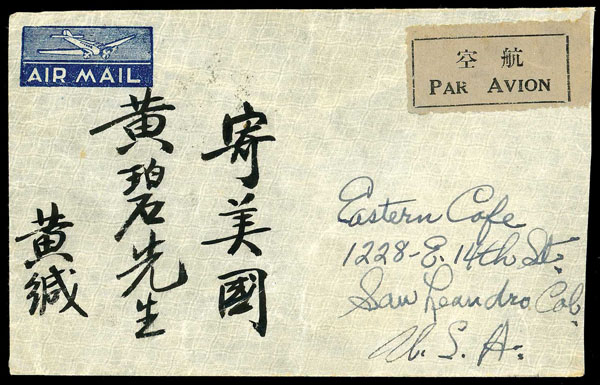 AIR MAIL
空航
PAR AVION
寄美國
黃碧先生
黃緘
Eastern Cafe
1228-E. 14th St.
San Leandro Cal.
U. S. A.